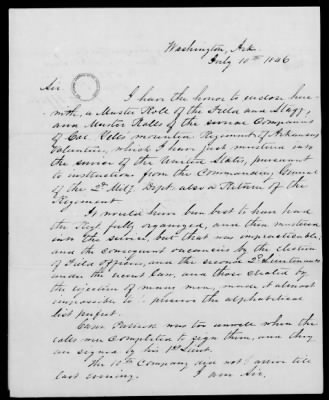 Washington, Ark.
July 10th 1846
Sir
I have the honor to enclose here-
with, a Muster Roll of the Field and Staff,
and Muster Rolls of the several Companies
of Col. Yells mounted Regiment of Arkansas
Volunteers, which I have just mustered into
the service of the United States, pursuant
to instructions from the Commanding General
of the 2d Mily. Dept. also a Return of the
Regiment
It would have been best to have had
the Regt fully organized, and then mustered
into the service, but that was impracticable,
and the consequent vacancies by the election
of Field Officers, and the second 2d Lieutenants
under the recent law, and those created by
the rejection of many men, made it almost
impossible to preserve the alphabetical
list perfect.
Capt Patrick was too unwell when the
rolls were Completed to sign them, and they
are signed by his 1st Lieut.
The 10th Company did not arrive till
last evening. I am Sir,